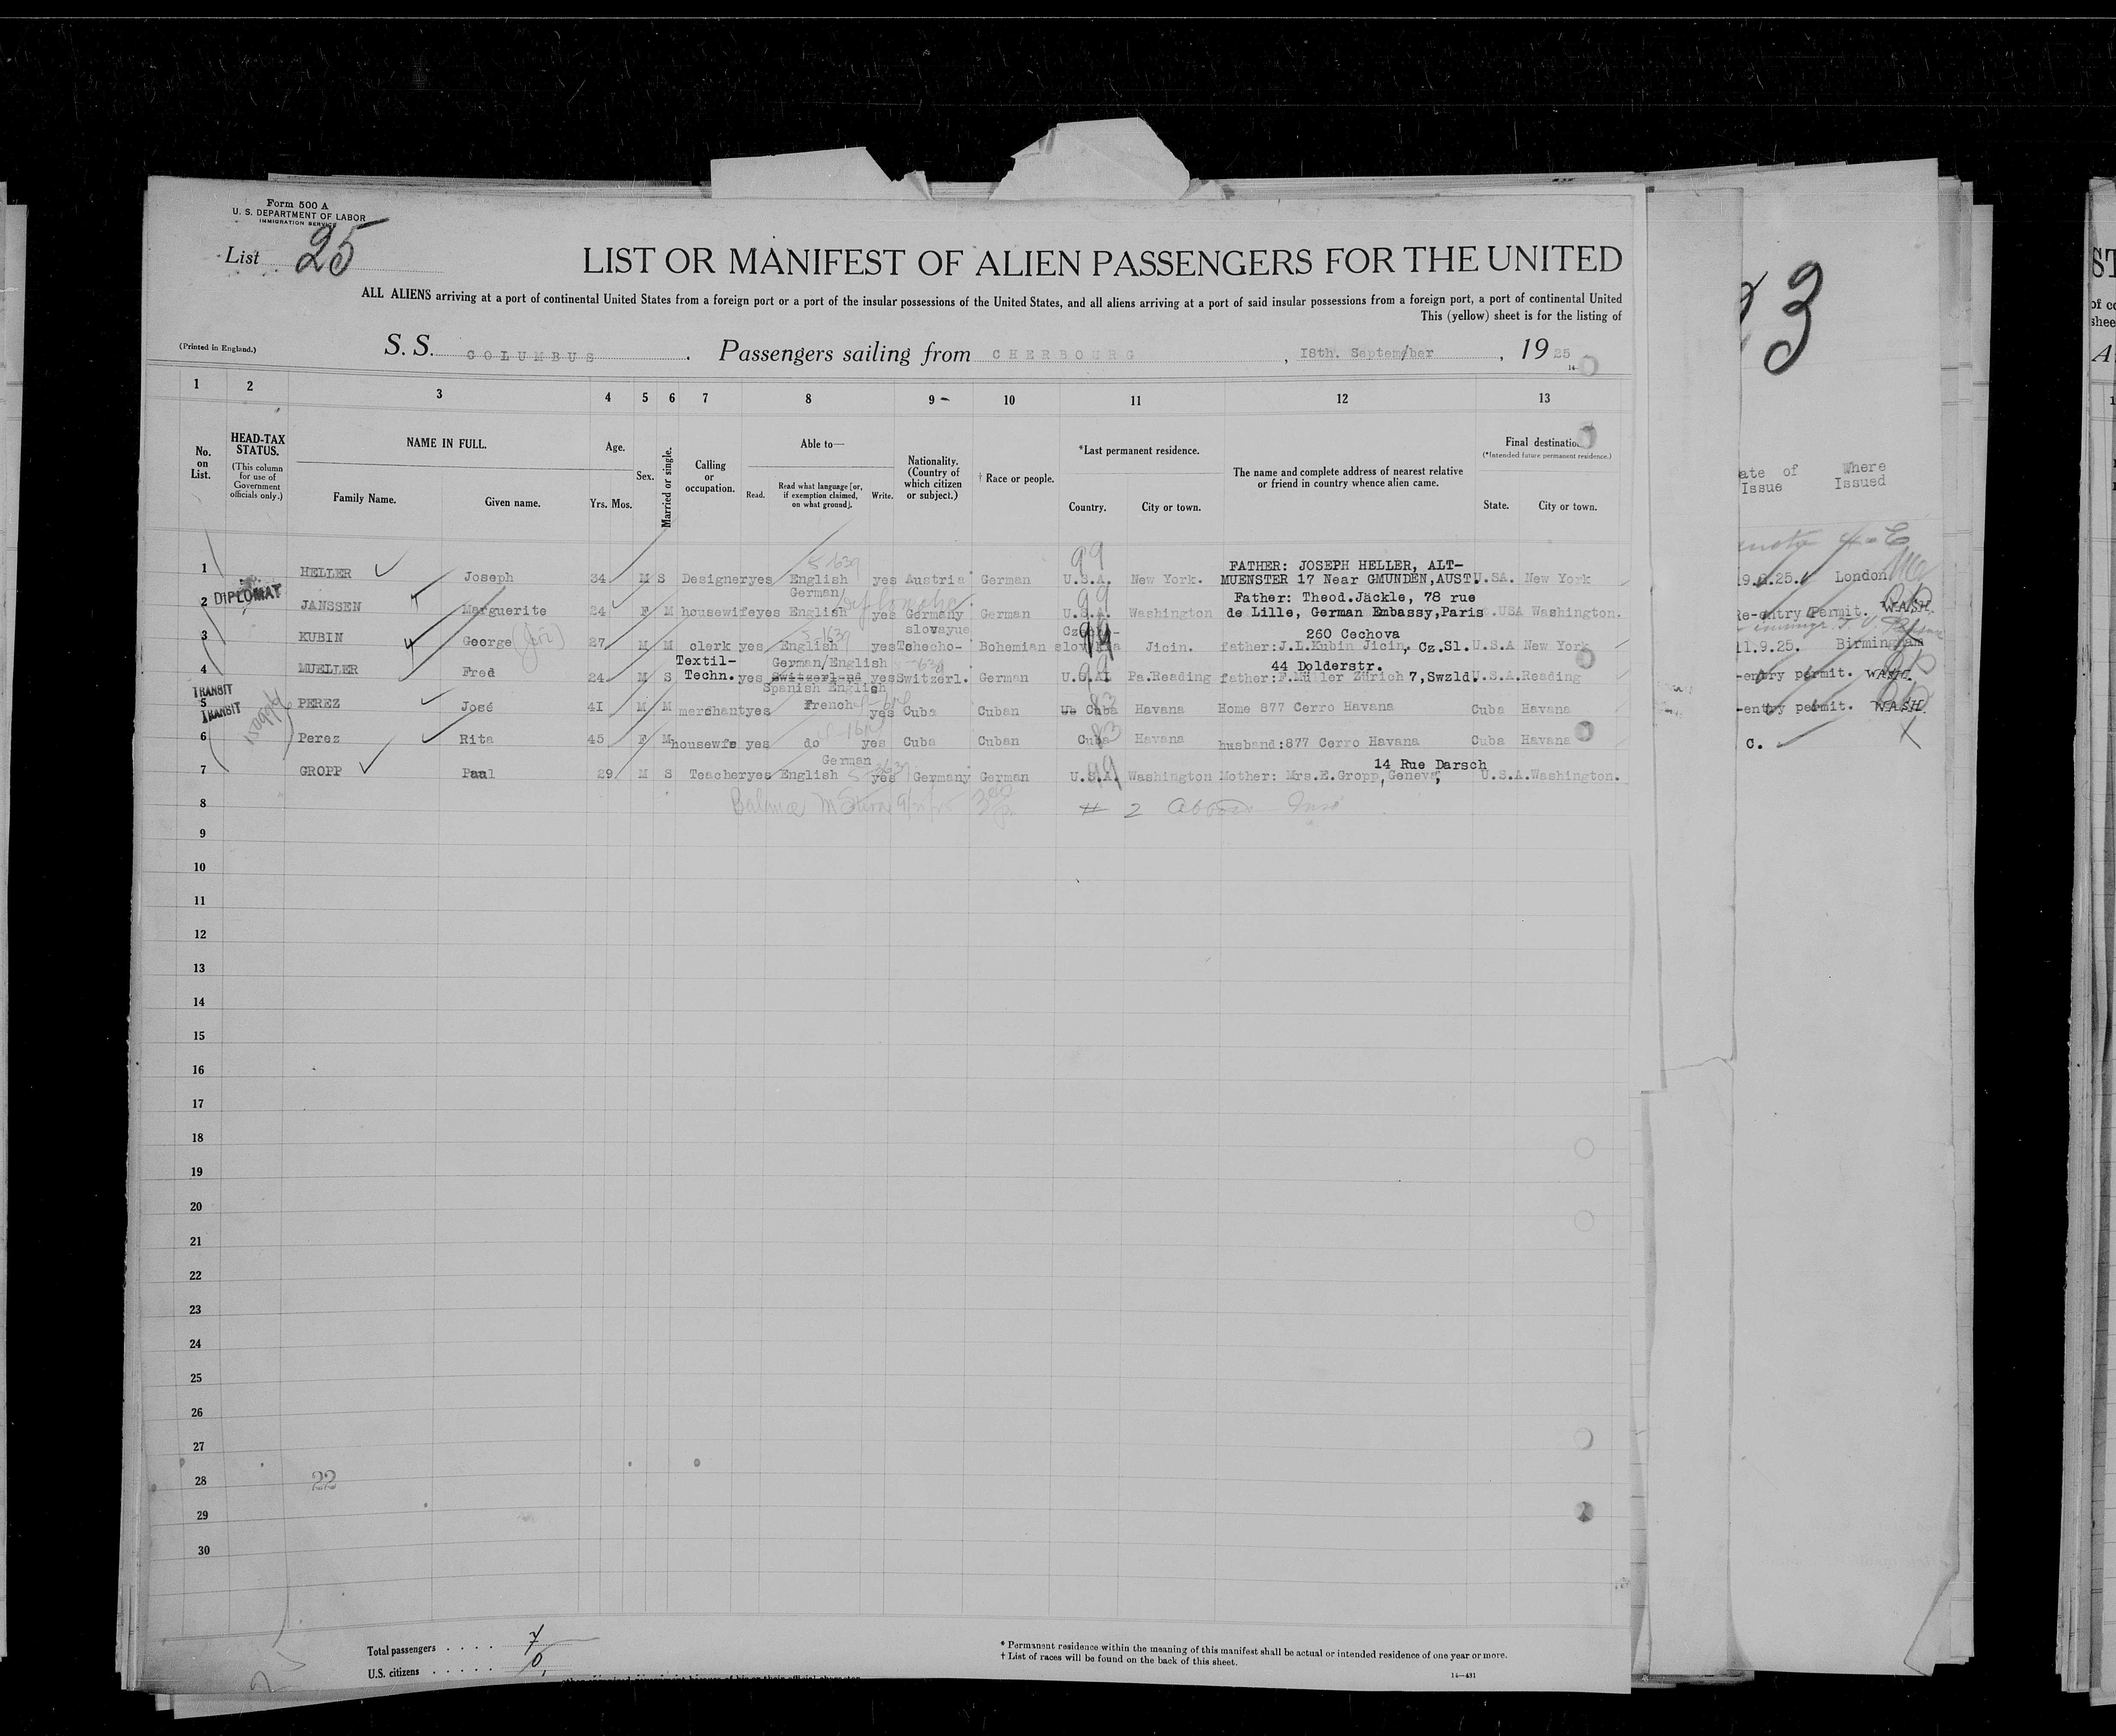 Form 500 A
U. S. DEPARTMENT OF LABOR
IMMIGRATION SERVICE
List 25
LIST OR MANIFEST OF ALIEN PASSENGERS FOR THE UNITED
ALL ALIENS arriving at a port of continental United States from a foreign port or a port of the insular possessions of the United States, and all aliens arriving at a port of said insular possessions from a foreign port, a port of continental United
This (yellow) sheet is for the listing of
(Printed in England.)
S. S. COLUMBUS. Passengers sailing from CHERBOURG, 18th. September, 1925
14-
1 2 3 4 5 6 7 8 9 10 11 12 13
No. on List.
HEAD-TAX STATUS.
(This column for use of Government officials only.)
NAME IN FULL.
Family Name. Given name.
Age.
Yrs. Mos.
Sex.
Married or single.
Calling or occupation.
Able to—
Read. Read what language [or, if exemption claimed, on what ground]. Write.
Nationality. (Country of which citizen or subject.)
† Race or people.
*Last permanent residence.
Country. City or town.
The name and complete address of nearest relative or friend in country whence alien came.
Final destination
(*Intended future permanent residence.)
State. City or town.
99 FATHER: JOSEPH HELLER, ALT-
1 HELLER Joseph 34 M S Designer yes English yes Austria German U.S.A. New York. MUENSTER 17 Near GMUNDEN,AUST U.SA. New York
German 99 Father: Theod.Jäckle, 78 rue
2 DIPLOMAT JANSSEN Marguerite 24 F M housewife yes English yes Germany German U.S.A. Washington de Lille, German Embassy,Paris .USA Washington.
slovayue 260 Cechova
3 KUBIN George 27 M M clerk yes English yes Tshecho- Bohemian Jicin. father:J.L.Kubin Jicin, Cz.Sl. U.S.A New York
Textil- German/English 99 44 Dolderstr.
4 MUELLER Fred 24 M S Techn. yes Switzerland yes Switzerl. German U.S.A Pa.Reading father:F.Müller Zürich 7,Swzld U.S.A.Reading
TRANSIT Spanish English
5 TRANSIT PEREZ José 4I M M merchant yes French yes Cuba Cuban Cuba Havana Home 877 Cerro Havana Cuba Havana
6 Perez Rita 45 F M housewfe yes do yes Cuba Cuban Cuba Havana husband:877 Cerro Havana Cuba Havana
German 99 14 Rue Darsch
7 GROPP Paul 29 M S Teacher yes English yes Germany German U.S.A. Washington Mother: Mrs.E.Gropp,Geneva, U.S.A.Washington.
8 Balance # 2
9
10
11
12
13
14
15
16
17
18
19
20
21
22
23
24
25
26
27
28 22
29
30
Total passengers . . . . 7
U.S. citizens . . . . . 0
* Permanent residence within the meaning of this manifest shall be actual or intended residence of one year or more.
† List of races will be found on the back of this sheet.
14—431
3
ate of Where
Issue Issued
London
Re-entry Permit. WASH.
11.9.25. Birmingham
-entry permit. WASH.
-entry permit. WASH.
C.
ST
of co
shee